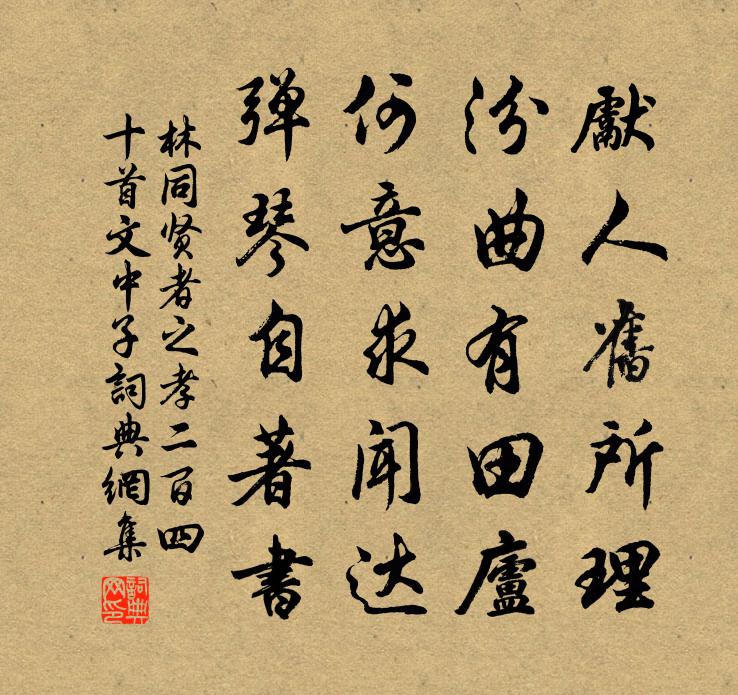 獻人舊所理
汾曲有田廬
何意求闻达
弹琴自著書
林同贤者之孝二百四
十首文中子詞典網集
詞典网印